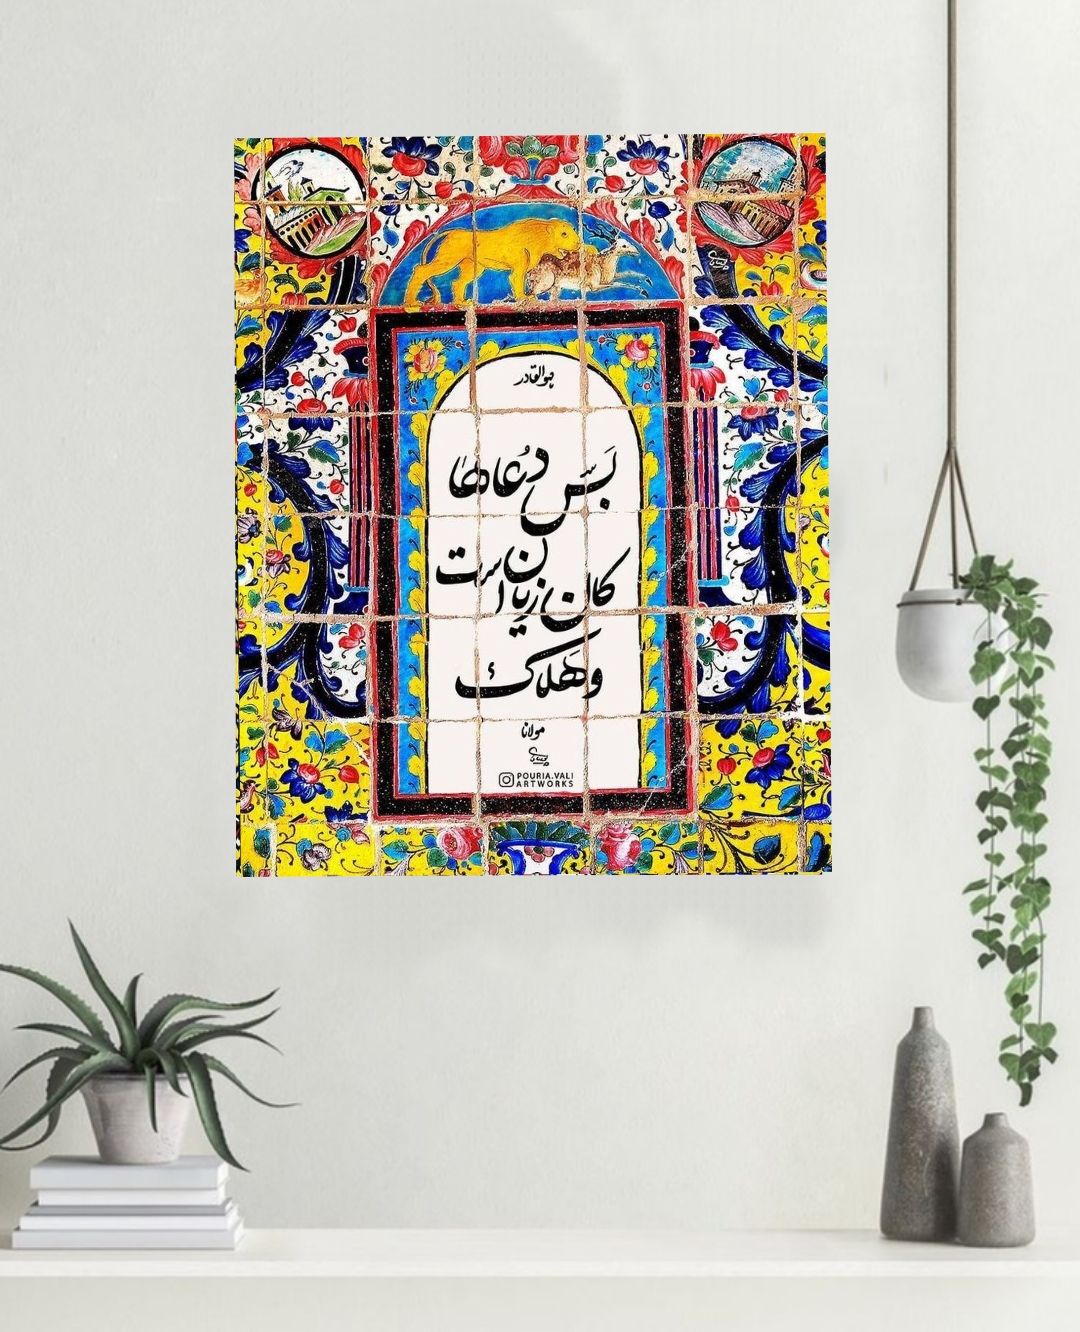 هوالقادر
بس دعاها
کان زیان است
و هلاک
مولانا
POURIA.VALI
ARTWORKS